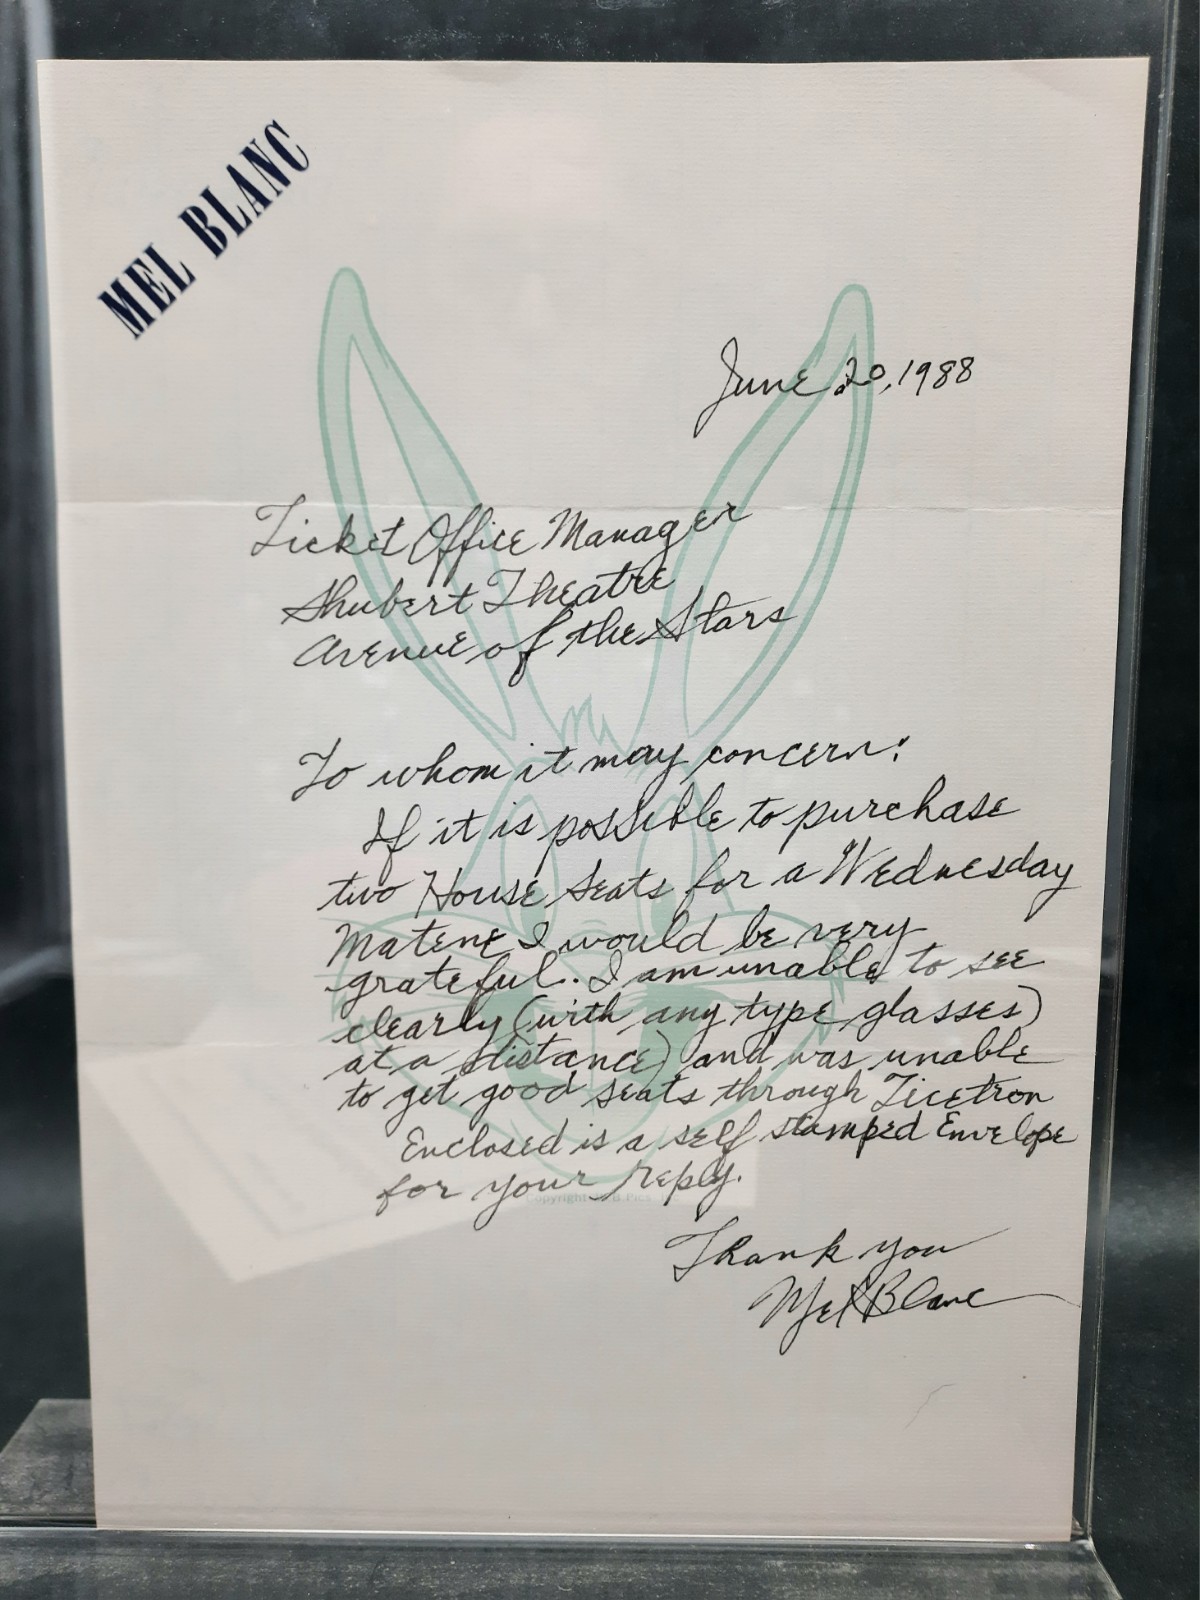 MEL BLANC
June 20, 1988
Ticket Office Manager
Shubert Theatre
Avenue of the Stars
To whom it may concern:
If it is possible to purchase
two House seats for a Wednesday
Matene I would be very
grateful.. I am unable to see
clearly (with any type glasses)
at a distance) and was unable
to get good seats through Ticetron
Enclosed is a self stamped Envelope
for your reply.
Copyright
Thank you
Mel Blanc